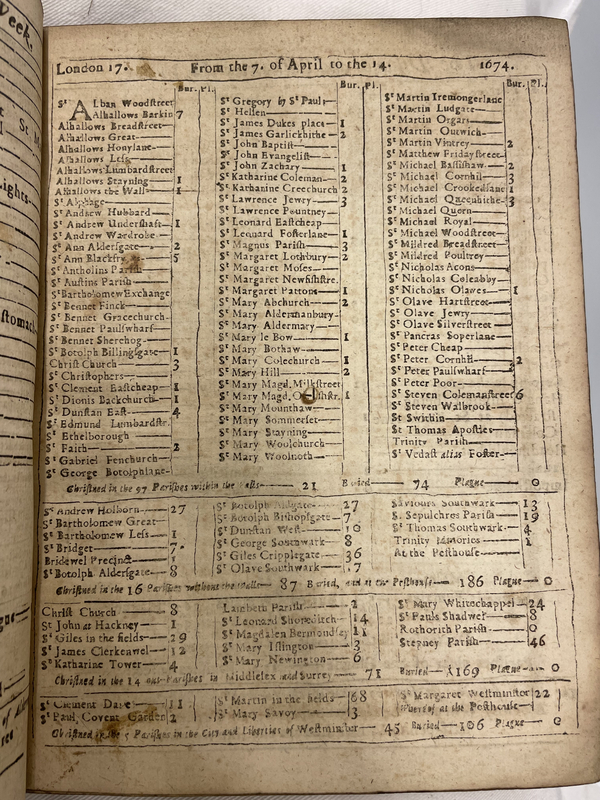 Week.
London 17. From the 7. of April to the 14. 1674.
Bur. Pl.
St Alban Woodstreet
Alhallows Barkin 7
Alhallows Breadstreet
Alhallows Great
Alhallows Honylane
Alhallows Less
Alhallows Lumbardstreet
Alhallows Stayning 1
Alhallows the Wall 1
St Alphage
St Andrew Hubbard
St Andrew Undershaft 1
St Andrew Wardrobe
St Ann Aldersgate 2
St Ann Blackfryers 5
St Antholins Parish
St Austins Parish
St Bartholomew Exchange
St Bennet Finck
St Bennet Gracechurch
St Bennet Paulswharf
St Bennet Sherehog
St Botolph Billingsgate 1
Christ Church 3
St Christophers
St Clement Eastcheap 1
St Dionis Backchurch 1
St Dunstan East 4
St Edmund Lumbardstr.
St Ethelborough
St Faith 2
St Gabriel Fenchurch
St George Botolphlane
Bur. Pl.
St Gregory by St Pauls
St Hellen
St James Dukes place 1
St James Garlickhithe 2
St John Baptist
St John Evangelist
St John Zachary 1
St Katharine Coleman 2
St Katharine Creechurch 2
St Lawrence Jewry 3
St Lawrence Pountney
St Leonard Eastcheap
St Leonard Fosterlane 1
St Magnus Parish 3
St Margaret Lothbury 2
St Margaret Moses
St Margaret Newfishstre.
St Margaret Pattons 1
St Mary Abchurch 2
St Mary Aldermanbury
St Mary Aldermary
St Mary le Bow 1
St Mary Bothaw
St Mary Colechurch 1
St Mary Hill 2
St Mary Magd. Milkstreet
St Mary Magd. Oldfishstr. 1
St Mary Mounthaw
St Mary Sommerset
St Mary Stayning
St Mary Woolchurch
St Mary Woolnoth
Bur. Pl.
St Martin Iremongerlane
St Martin Ludgate
St Martin Orgars
St Martin Outwich
St Martin Vintrey 2
St Matthew Fridaystreet
St Michael Bassishaw 2
St Michael Cornhil 3
St Michael Crookedlane 1
St Michael Queenhithe 3
St Michael Quern
St Michael Royal
St Michael Woodstreet
St Mildred Breadstreet
St Mildred Poultrey
St Nicholas Acons
St Nicholas Coleabby
St Nicholas Olawes 1
St Olave Hartstreet
St Olave Jewry
St Olave Silverstreet
St Pancras Soperlane
St Peter Cheap
St Peter Cornhil 2
St Peter Paulswharf
St Peter Poor
St Steven Colemanstreet 6
St Steven Walbrook
St Swithin
St Thomas Apostles
Trinity Parish
St Vedast alias Foster
Christned in the 97 Parishes within the Walls 21 Buried 74 Plague 0
St Andrew Holborn 27
St Bartholomew Great
St Bartholomew Less 1
St Bridget 7
Bridewel Precinct 1
St Botolph Aldersgate 8
St Botolph Aldgate 27
St Botolph Bishopsgate 7
St Dunstan West 10
St George Southwark 8
St Giles Cripplegate 36
St Olave Southwark 17
Saviours Southwark 13
St Sepulchres Parish 19
St Thomas Southwark 4
Trinity Minories 1
At the Pesthouse
Christned in the 16 Parishes without the Walls 87 Buried, and at the Pesthouse 186 Plague 0
Christ Church 8
St John at Hackney 1
St Giles in the fields 29
St James Clerkenwel 12
St Katharine Tower 4
Lambeth Parish 2
St Leonard Shoreditch 14
St Magdalen Bermondsey 11
St Mary Islington 3
St Mary Newington 6
St Mary Whitechappel 24
St Pauls Shadwel 8
Rothorith Parish 0
Stepney Parish 46
Christned in the 14 out-Parishes in Middlesex and Surrey 71 Buried 169 Plague 0
St Clement Dane 11
St Paul Covent Garden 2
St Martin in the fields 68
St Mary Savoy 3
St Margaret Westminster 22
Whereof at the Pesthouse
Christned in the 5 Parishes in the City and Liberties of Westminster 45 Buried 106 Plague 0